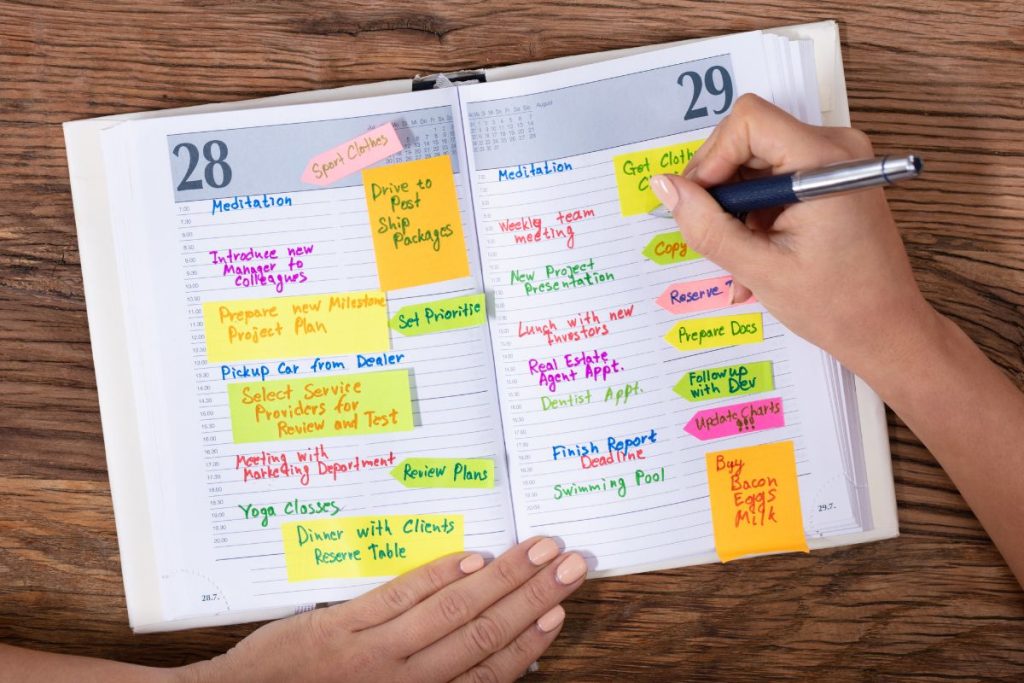 28
Sport Clothes
Meditation
Drive to
Post
Ship
Packages
Introduce new
Manager to
Colleagues
Prepare new Milestone
Project Plan
Set Prioritie
Pickup Car from Dealer
Select Service
Providers for
Review and Test
Meeting with
Marketing Department
Review Plans
Yoga Classes
Dinner with Clients
Reserve Table
28.7.
August
29
Meditation
Get Clothe
Weekly team
meeting
Copy
New Project
Presentation
Reserve
Lunch with new
Investors
Prepare Docs
Real Estate
Agent Appt.
Follow up
with Dev
Dentist Appt.
Update Charts
!!!
Finish Report
Deadline
Buy
Bacon
Eggs
Milk
Swimming Pool
29.7.